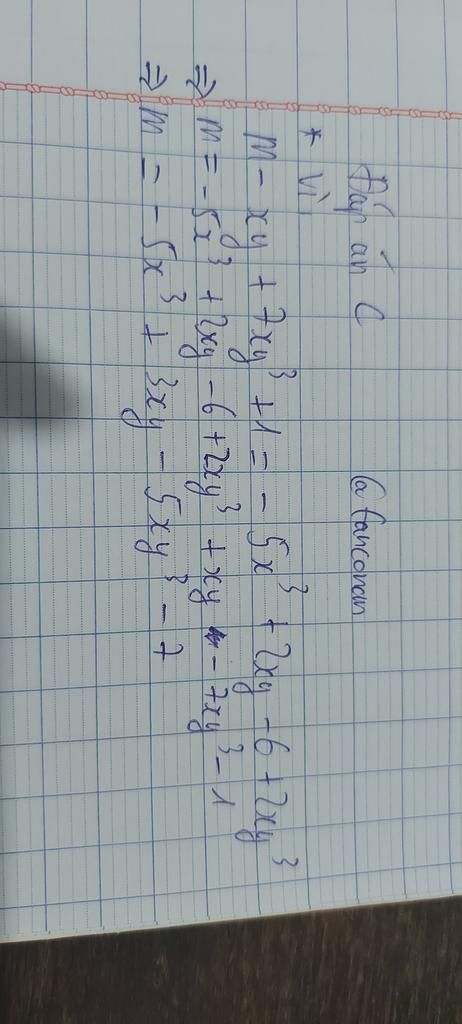 Đáp án C @tanconan
* Vì
M - xy + 7xy³ + 1 = - 5x³ + 2xy - 6 + 2xy³
⇒ M = - 5x³ + 2xy - 6 + 2xy³ + xy - 7xy³ - 1
⇒ M = - 5x³ + 3xy - 5xy³ - 7